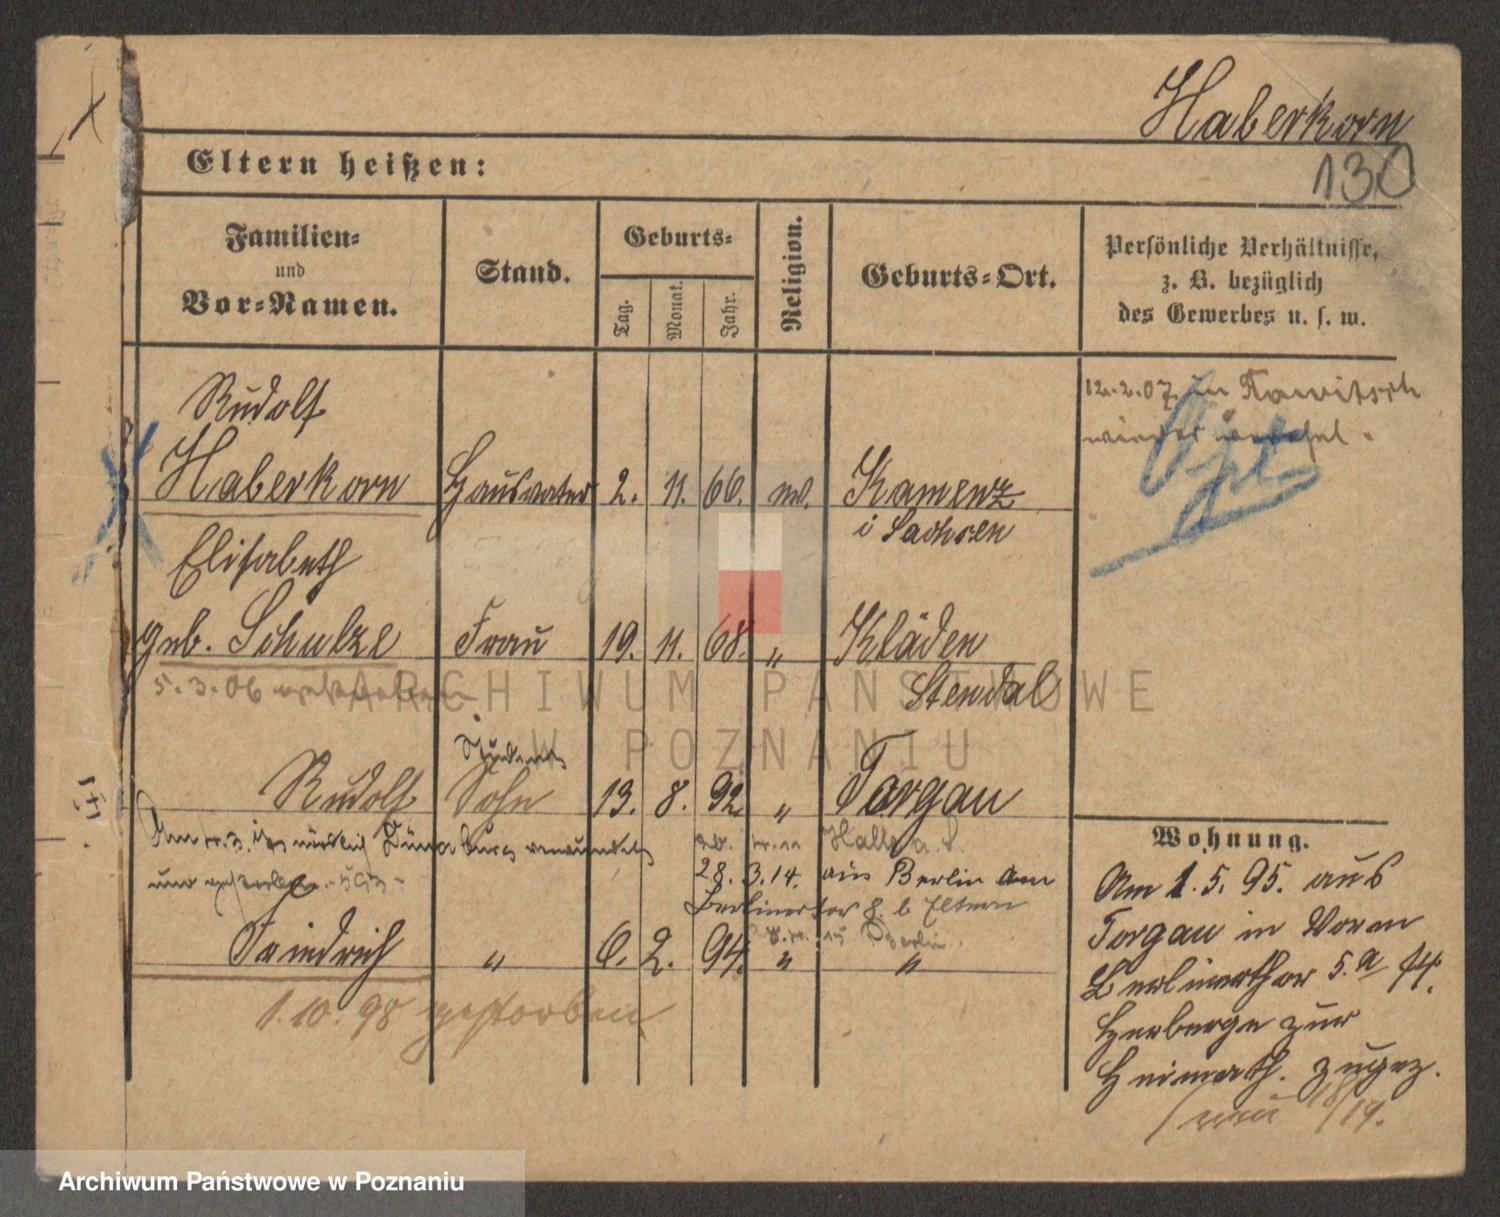 Haberkorn
130
Eltern heißen:
Familien=
und
Vor=Namen.
Stand.
Geburts=
Tag.
Monat.
Jahr.
Religion.
Geburts=Ort.
Persönliche Verhältnisse,
z. B. bezüglich
des Gewerbes u. s. w.
Rudolf
Haberkorn Hausvater 2. 11. 66. Kamenz
i Sachsen
12.2.07 in Rawitsch
wieder
Elisabeth
geb. Schulze Frau 19. 11. 68. " Kläden
Stendal
5.3.06
Student
Rudolf Sohn 13. 8. 92. " Torgau
Am verwundet
und gestorben
Halle a. S.
28.3.14. aus Berlin Am
Berlinertor 8. b Eltern
Berlin
Friedrich " 6. 2. 94. " "
1.10.98 gestorben
Wohnung.
Am 1.5.95. aus
Torgau in Vorm
Berlinerthor 5.a
Herberge zur
Heimath. zugez.
ARCHIWUM PAŃSTWOWE
W POZNANIU
Archiwum Państwowe w Poznaniu